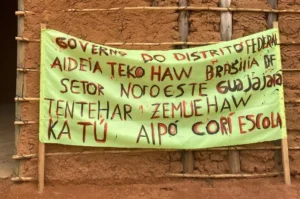 GOVERNO DO DISTRITO FEDERAL
AIDEIA TEKO HAW BRASILIA DF
SETOR NOROESTE GUAJAJARA
TENTEHAR ZEMUE HAW
KATÚ AIPÓ CORÍ ESCOLA